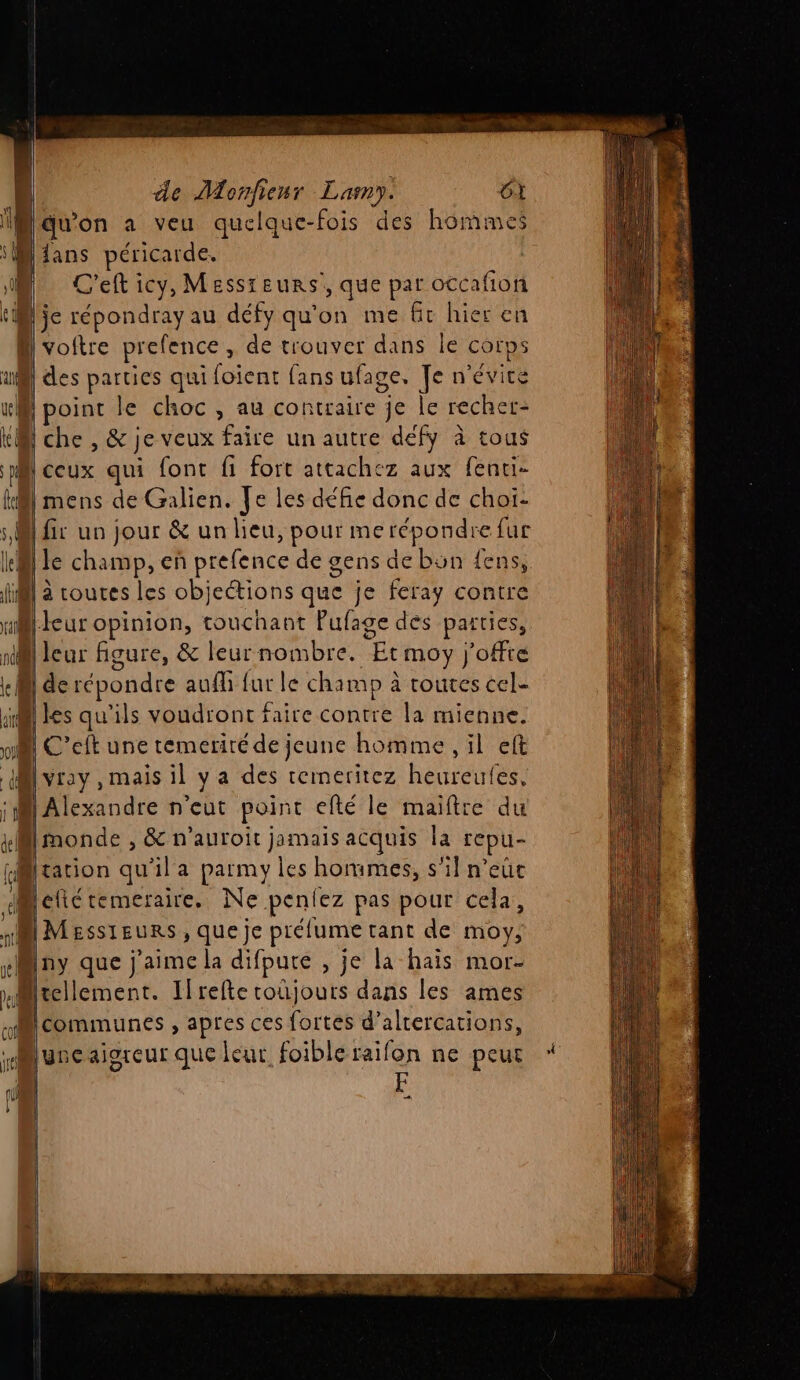 de Monſieur Lamy. 61
qu'on a veu quelque-fois des hommes
ſans péricarde.
C'eſt icy, MESSIEURS, que par occaſion
je répondray au défy qu'on me fit hier en
voſtre preſence, de trouver dans le corps
des parties qui ſoient ſans uſage. Je n'évite
point le choc, au contraire je le recher-
che, & je veux faire un autre défy à tous
ceux qui ſont ſi fort attachez aux ſenti-
mens de Galien. Je les défie donc de choi-
ſir un jour & un lieu, pour me répondre ſur
le champ, en preſence de gens de bon ſens,
à toutes les objections que je feray contre
leur opinion, touchant l'uſage des parties,
leur figure, & leur nombre. Et moy j'offre
de répondre auſſi ſur le champ à toutes cel-
les qu'ils voudront faire contre la mienne.
C'eſt une temerité de jeune homme, il eſt
vray, mais il y a des temeritez heureuſes.
Alexandre n'eut point eſté le maiſtre du
monde, & n'auroit jamais acquis la repu-
tation qu'il a parmy les hommes, s'il n'eût
eſté temeraire. Ne penſez pas pour cela,
MESSIEURS, que je préſume tant de moy,
ny que j'aime la diſpute, je la hais mor-
tellement. Il reſte toûjours dans les ames
communes, apres ces fortes d'altercations,
une aigreur que leur foible raiſon ne peut
F